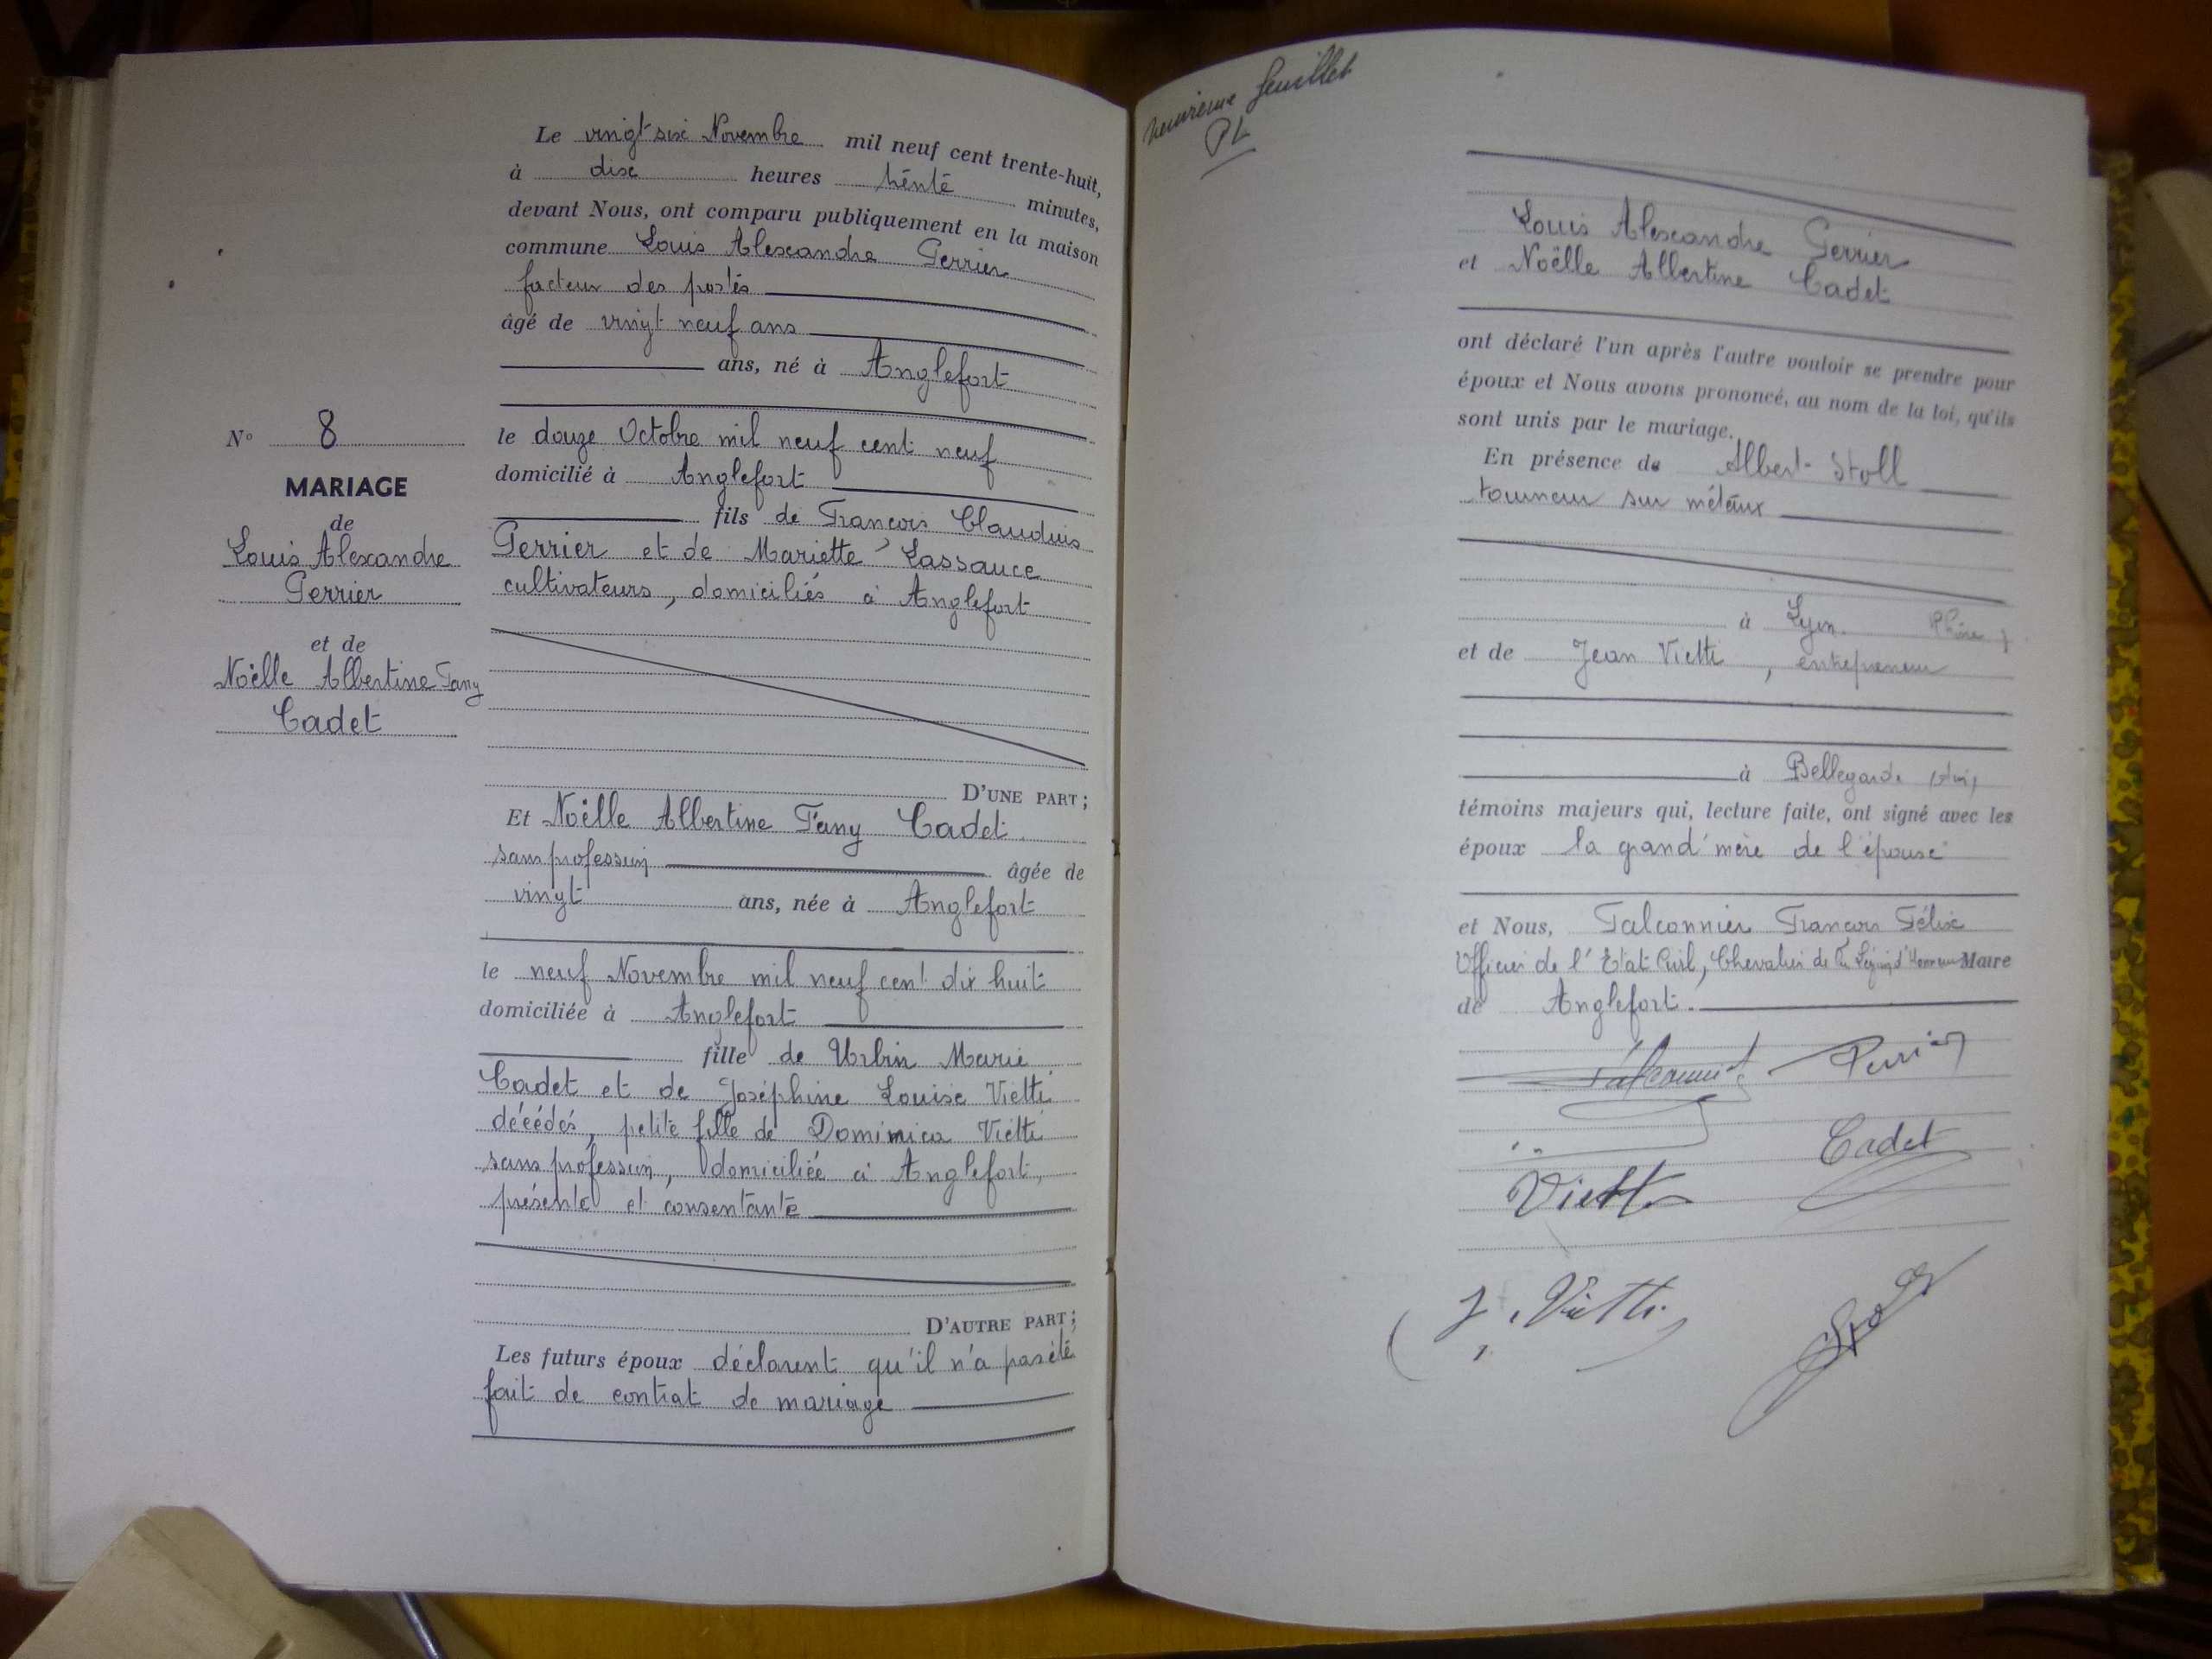 Le vingt six Novembre mil neuf cent trente-huit,
à dix heures trente minutes,
devant Nous, ont comparu publiquement en la maison
commune Louis Alexandre Perrier
facteur des postes
âgé de vingt neuf ans
ans, né à Anglefort
le douze Octobre mil neuf cent neuf
domicilié à Anglefort
fils de Francois Claudius
Perrier et de Mariette Lassauce
cultivateurs, domiciliés à Anglefort
D'UNE PART;
N° 8
MARIAGE
de
Louis Alexandre
Perrier
et de
Noëlle Albertine Fany
Cadet
Et Noëlle Albertine Fany Cadet
sans profession âgée de
vingt ans, née à Anglefort
le neuf Novembre mil neuf cent dix huit
domiciliée à Anglefort
fille de Urbin Marie
Cadet et de Joséphine Louise Vietti
décédés, petite fille de Dominica Vietti
sans profession, domiciliée à Anglefort,
présente et consentante
D'AUTRE PART;
Les futurs époux déclarent qu'il n'a pas été
fait de contrat de mariage
feuillet
PL
Louis Alexandre Perrier
et Noëlle Albertine Cadet
ont déclaré l'un après l'autre vouloir se prendre pour
époux et Nous avons prononcé, au nom de la loi, qu'ils
sont unis par le mariage.
En présence de Albert Stoll
tourneur sur métaux
à Lyon Rhône
et de Jean Vietti, entrepreneur
à Bellegarde (Ain)
témoins majeurs qui, lecture faite, ont signé avec les
époux la grand'mère de l'épouse
et Nous, Falconnier Francois Félix
Officier de l'Etat Civil, Chevalier de la Légion d'Honneur Maire
de Anglefort.
Falconnier Perrier
Cadet
Vietti
J. Vietti